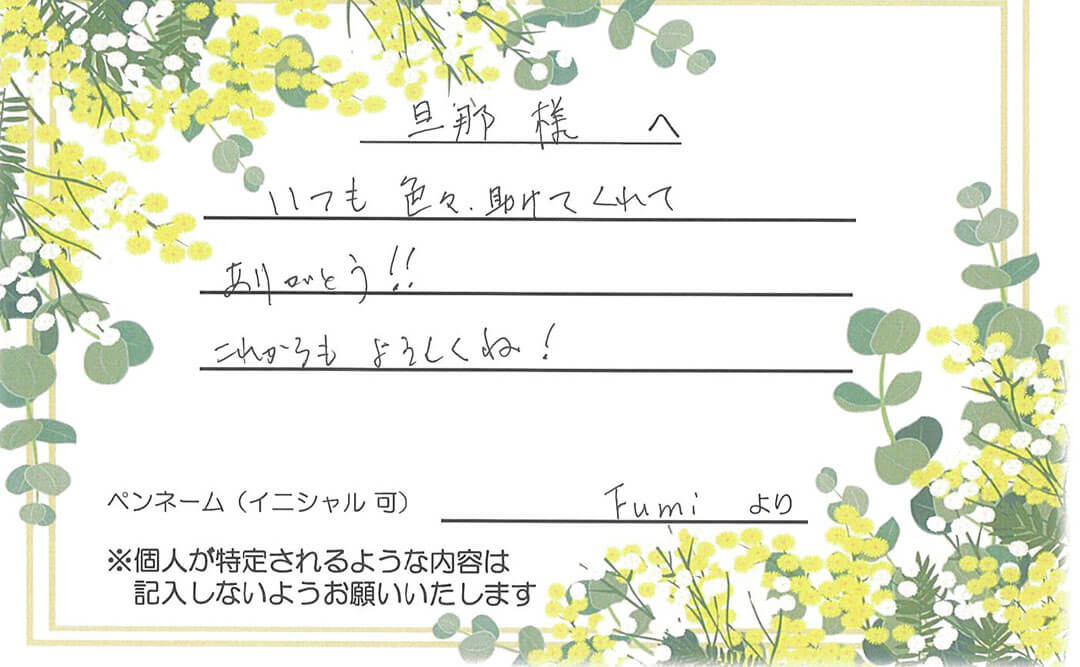 旦那様 へ
いつも 色々、助けてくれて
ありがとう!!
これからも よろしくね!
ペンネーム（イニシャル 可） Fumi より
※個人が特定されるような内容は
記入しないようお願いいたします